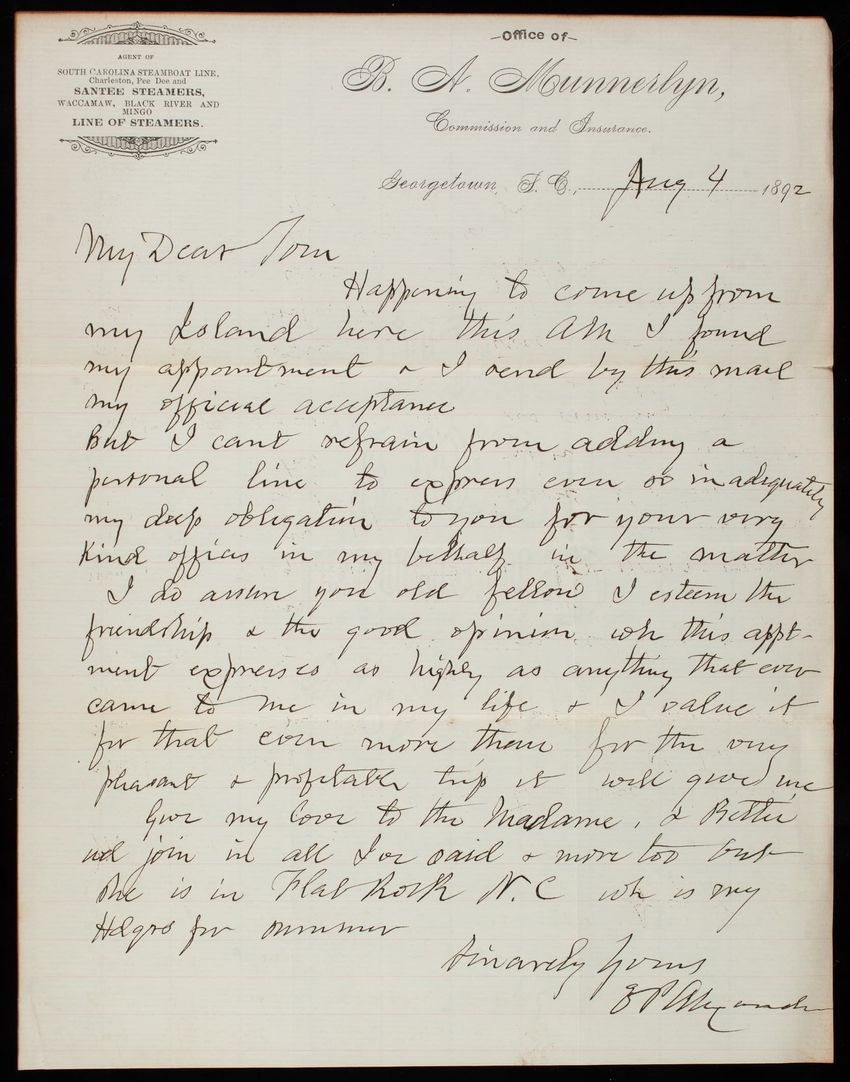 AGENT OF
SOUTH CAROLINA STEAMBOAT LINE,
Charleston, Pee Dee and
SANTEE STEAMERS,
WACCAMAW, BLACK RIVER AND
MINGO
LINE OF STEAMERS.
-Office of-
B. A. Munnerlyn,
Commission and Insurance.
Georgetown, S. C., Aug 4 1892
My Dear Tom
Happening to come up from
my Island here this AM I found
my appointment & I send by this mail
my official acceptance
But I cant refrain from adding a
personal line to express even so inadequately
my deep obligation to you for your very
kind offices in my behalf in the matter
I do assure you old fellow I esteem the
friendship & the good opinion wh this appt-
ment expresses as highly as anything that ever
came to me in my life & I value it
for that even more than for the very
pleasant & profitable trip it will give me
Give my love to the Madame, & Bettie
wd join in all I've said & more too but
she is in Flat Rock N.C wh is my
Hdqrs for summer
Sincerely Yours
E P Alexander